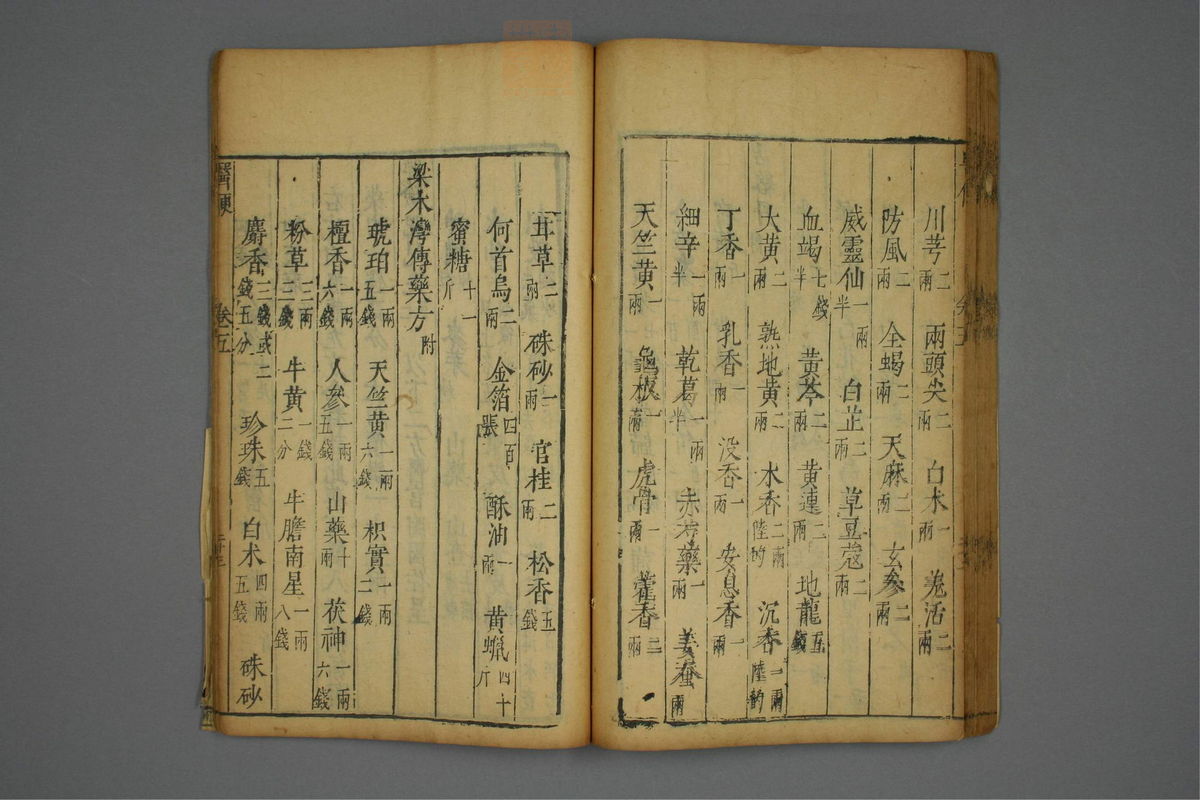 川芎二兩 兩頭尖二兩 白朮一兩 羌活二兩
防風二兩 全蝎二兩 天麻二兩 玄參二兩
威靈仙一兩半 白芷二兩 草豆蔻二兩
血竭七錢半 黃芩二兩 黃連二兩 地龍五錢
大黃二兩 熟地黃二兩 水香二兩 沉香二兩
丁香一兩 乳香一兩 没香一兩 安息香一兩
細辛一兩半 乾葛一兩半 赤芍藥一兩 姜蚕一兩
天竺黃一兩 龜板一兩 虎骨一兩 藿香二兩
草二兩 硃砂一兩 官桂二兩 松香五錢
何首烏二兩 金箔四百張 酥油一兩 黃蠟四十斤
蜜糖十一斤
梁木灣傳藥方附
琥珀一兩五錢 天竺黃一兩六錢 枳實一兩二錢
檀香一兩六錢 人參一兩五錢 山藥十兩 茯神一兩六錢
粉草三兩三錢 牛黃一錢二分 牛膽南星一兩八錢
麝香三錢或二錢五分 珍珠五錢 白朮四兩五錢 硃砂
醫便 卷五